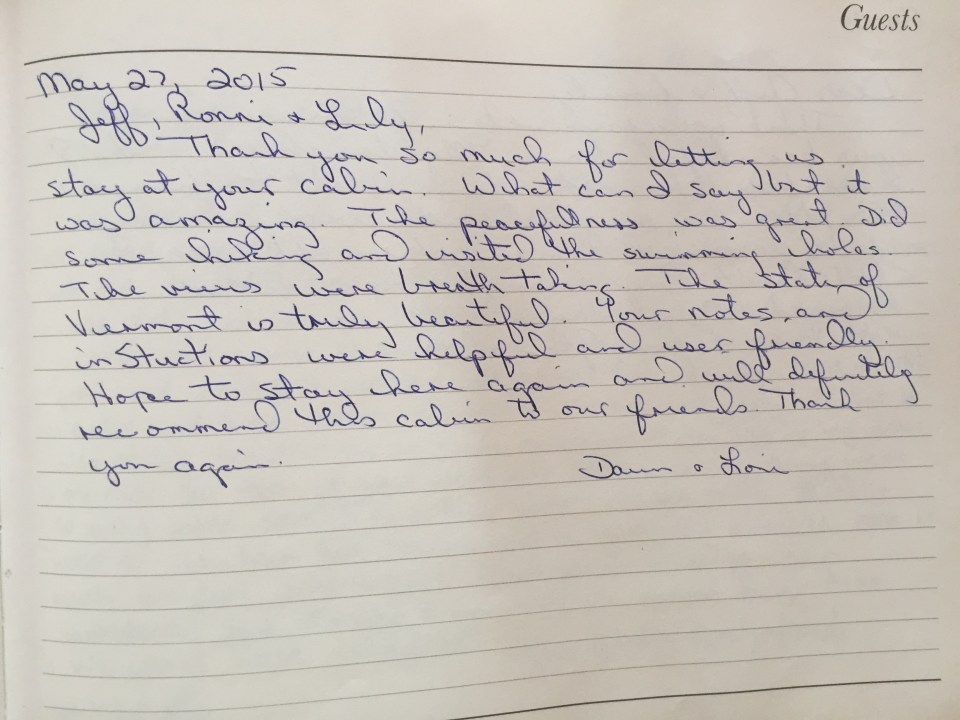 Guests
May 27, 2015
Jeff, Ronni + Lily,
Thank you so much for letting us
stay at your cabin. What can I say but it
was amazing. The peacefullness was great. Did
some hiking and visited the swimming holes.
The views were breath taking. The State of
Viermont is truly beautiful. Your notes, and
instuctions were helpful and user friendly.
Hope to stay here again and will definitely
recommend this cabin to our friends. Thank
you again.
Dawn + Lori